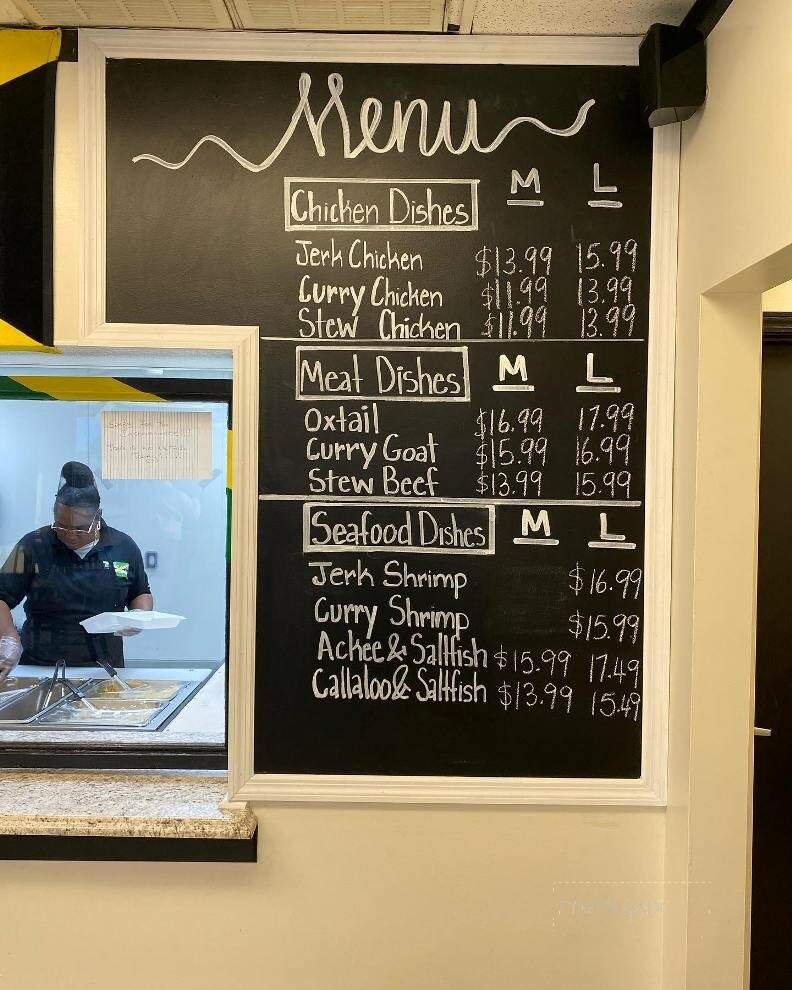 Menu
M L
Chicken Dishes
Jerk Chicken $13.99 15.99
Curry Chicken $11.99 13.99
Stew Chicken $11.99 13.99
Meat Dishes M L
Oxtail $16.99 17.99
Curry Goat $15.99 16.99
Stew Beef $13.99 15.99
Seafood Dishes M L
Jerk Shrimp $16.99
Curry Shrimp $15.99
Ackee & Saltfish $15.99 17.49
Callaloo & Saltfish $13.99 15.49